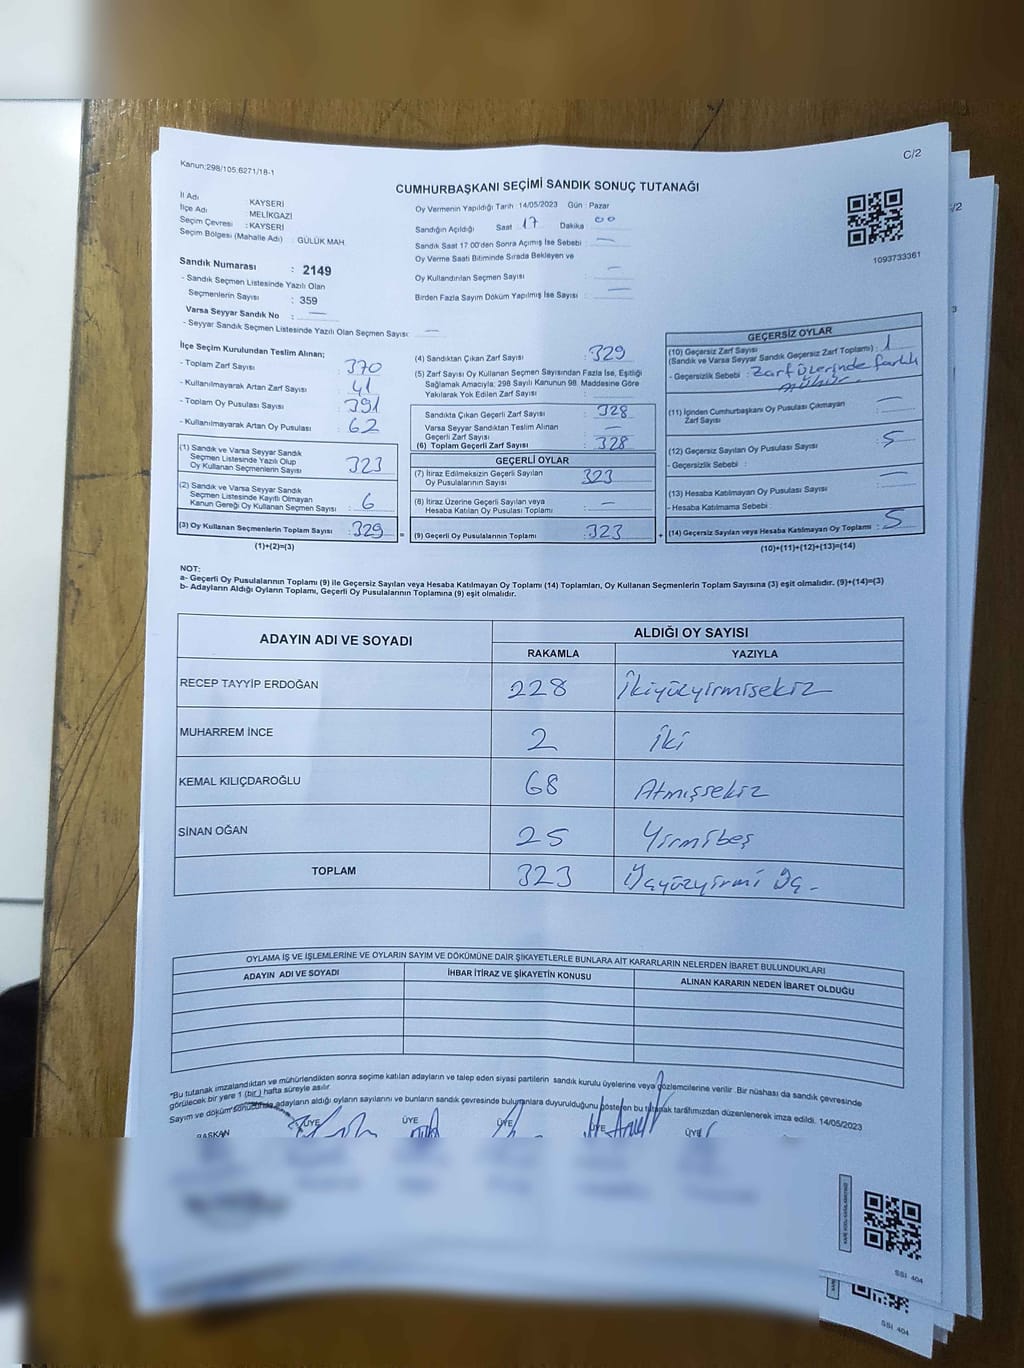 C/2
Kanun:298/105.6271/18-1
CUMHURBAŞKANI SEÇİMİ SANDIK SONUÇ TUTANAĞI
İl Adı : KAYSERİ
İlçe Adı : MELİKGAZİ
Seçim Çevresi : KAYSERİ
Seçim Bölgesi (Mahalle Adı) : GÜLÜK MAH.
Oy Vermenin Yapıldığı Tarih 14/05/2023 Gün : Pazar
Sandığın Açıldığı Saat 17 Dakika 00
Sandık Saat 17:00'den Sonra Açımış İse Sebebi : —
Oy Verme Saati Bitiminde Sırada Bekleyen ve
Oy Kullandırılan Seçmen Sayısı : —
Birden Fazla Sayım Döküm Yapılmış İse Sayısı : —
1093733361
Sandık Numarası : 2149
- Sandık Seçmen Listesinde Yazılı Olan
Seçmenlerin Sayısı : 359
Varsa Seyyar Sandık No : —
- Seyyar Sandık Seçmen Listesinde Yazılı Olan Seçmen Sayısı: —
İlçe Seçim Kurulundan Teslim Alınan;
- Toplam Zarf Sayısı : 370
- Kullanılmayarak Artan Zarf Sayısı : 41
- Toplam Oy Pusulası Sayısı : 391
- Kullanılmayarak Artan Oy Pusulası : 62
(1) Sandık ve Varsa Seyyar Sandık
Seçmen Listesinde Yazılı Olup
Oy Kullanan Seçmenlerin Sayısı : 323
(2) Sandık ve Varsa Seyyar Sandık
Seçmen Listesinde Kayıtlı Olmayan
Kanun Gereği Oy Kullanan Seçmen Sayısı : 6
(3) Oy Kullanan Seçmenlerin Toplam Sayısı : 329 =
(1)+(2)=(3)
(4) Sandıktan Çıkan Zarf Sayısı : 329
(5) Zarf Sayısı Oy Kullanan Seçmen Sayısından Fazla İse, Eşitliği
Sağlamak Amacıyla; 298 Sayılı Kanunun 98. Maddesine Göre
Yakılarak Yok Edilen Zarf Sayısı :
Sandıkta Çıkan Geçerli Zarf Sayısı : 328
Varsa Seyyar Sandıktan Teslim Alınan
Geçerli Zarf Sayısı : —
(6) Toplam Geçerli Zarf Sayısı : 328
GEÇERLİ OYLAR
(7) İtiraz Edilmeksizin Geçerli Sayılan
Oy Pusulalarının Sayısı : 323
(8) İtiraz Üzerine Geçerli Sayılan veya
Hesaba Katılan Oy Pusulası Toplamı : —
(9) Geçerli Oy Pusulalarının Toplamı : 323 +
GEÇERSİZ OYLAR
(10) Geçersiz Zarf Sayısı
(Sandık ve Varsa Seyyar Sandık Geçersiz Zarf Toplamı) : 1
- Geçersizlik Sebebi : Zarf üzerinde farklı
mühür.
(11) İçinden Cumhurbaşkanı Oy Pusulası Çıkmayan
Zarf Sayısı : —
(12) Geçersiz Sayılan Oy Pusulası Sayısı : 5
- Geçersizlik Sebebi :
(13) Hesaba Katılmayan Oy Pusulası Sayısı : —
- Hesaba Katılmama Sebebi :
(14) Geçersiz Sayılan veya Hesaba Katılmayan Oy Toplamı : 5
(10)+(11)+(12)+(13)=(14)
NOT:
a- Geçerli Oy Pusulalarının Toplamı (9) ile Geçersiz Sayılan veya Hesaba Katılmayan Oy Toplamı (14) Toplamları, Oy Kullanan Seçmenlerin Toplam Sayısına (3) eşit olmalıdır. (9)+(14)=(3)
b- Adayların Aldığı Oyların Toplamı, Geçerli Oy Pusulalarının Toplamına (9) eşit olmalıdır.
ADAYIN ADI VE SOYADI ALDIĞI OY SAYISI
RAKAMLA YAZIYLA
RECEP TAYYİP ERDOĞAN 228 İkiyüzyirmisekiz
MUHARREM İNCE 2 İki
KEMAL KILIÇDAROĞLU 68 Atmışsekiz
SİNAN OĞAN 25 Yirmibeş
TOPLAM 323 Üçyüzyirmi Üç -
OYLAMA İŞ VE İŞLEMLERİNE VE OYLARIN SAYIM VE DÖKÜMÜNE DAİR ŞİKAYETLERLE BUNLARA AİT KARARLARIN NELERDEN İBARET BULUNDUKLARI
ADAYIN ADI VE SOYADI İHBAR İTİRAZ VE ŞİKAYETİN KONUSU ALINAN KARARIN NEDEN İBARET OLDUĞU
*Bu tutanak imzalandıktan ve mühürlendikten sonra seçime katılan adayların ve talep eden siyasi partilerin sandık kurulu üyelerine veya gözlemcilerine verilir. Bir nüshası da sandık çevresinde
görülecek bir yere 1 (bir) hafta süreyle asılır.
Sayım ve döküm sonucunda adayların aldığı oyların sayılarını ve bunların sandık çevresinde bulunanlara duyurulduğunu gösteren bu tutanak tarafımızdan düzenlenerek imza edildi. 14/05/2023
BAŞKAN ÜYE ÜYE ÜYE ÜYE ÜYE
SSI 404
SSI 404